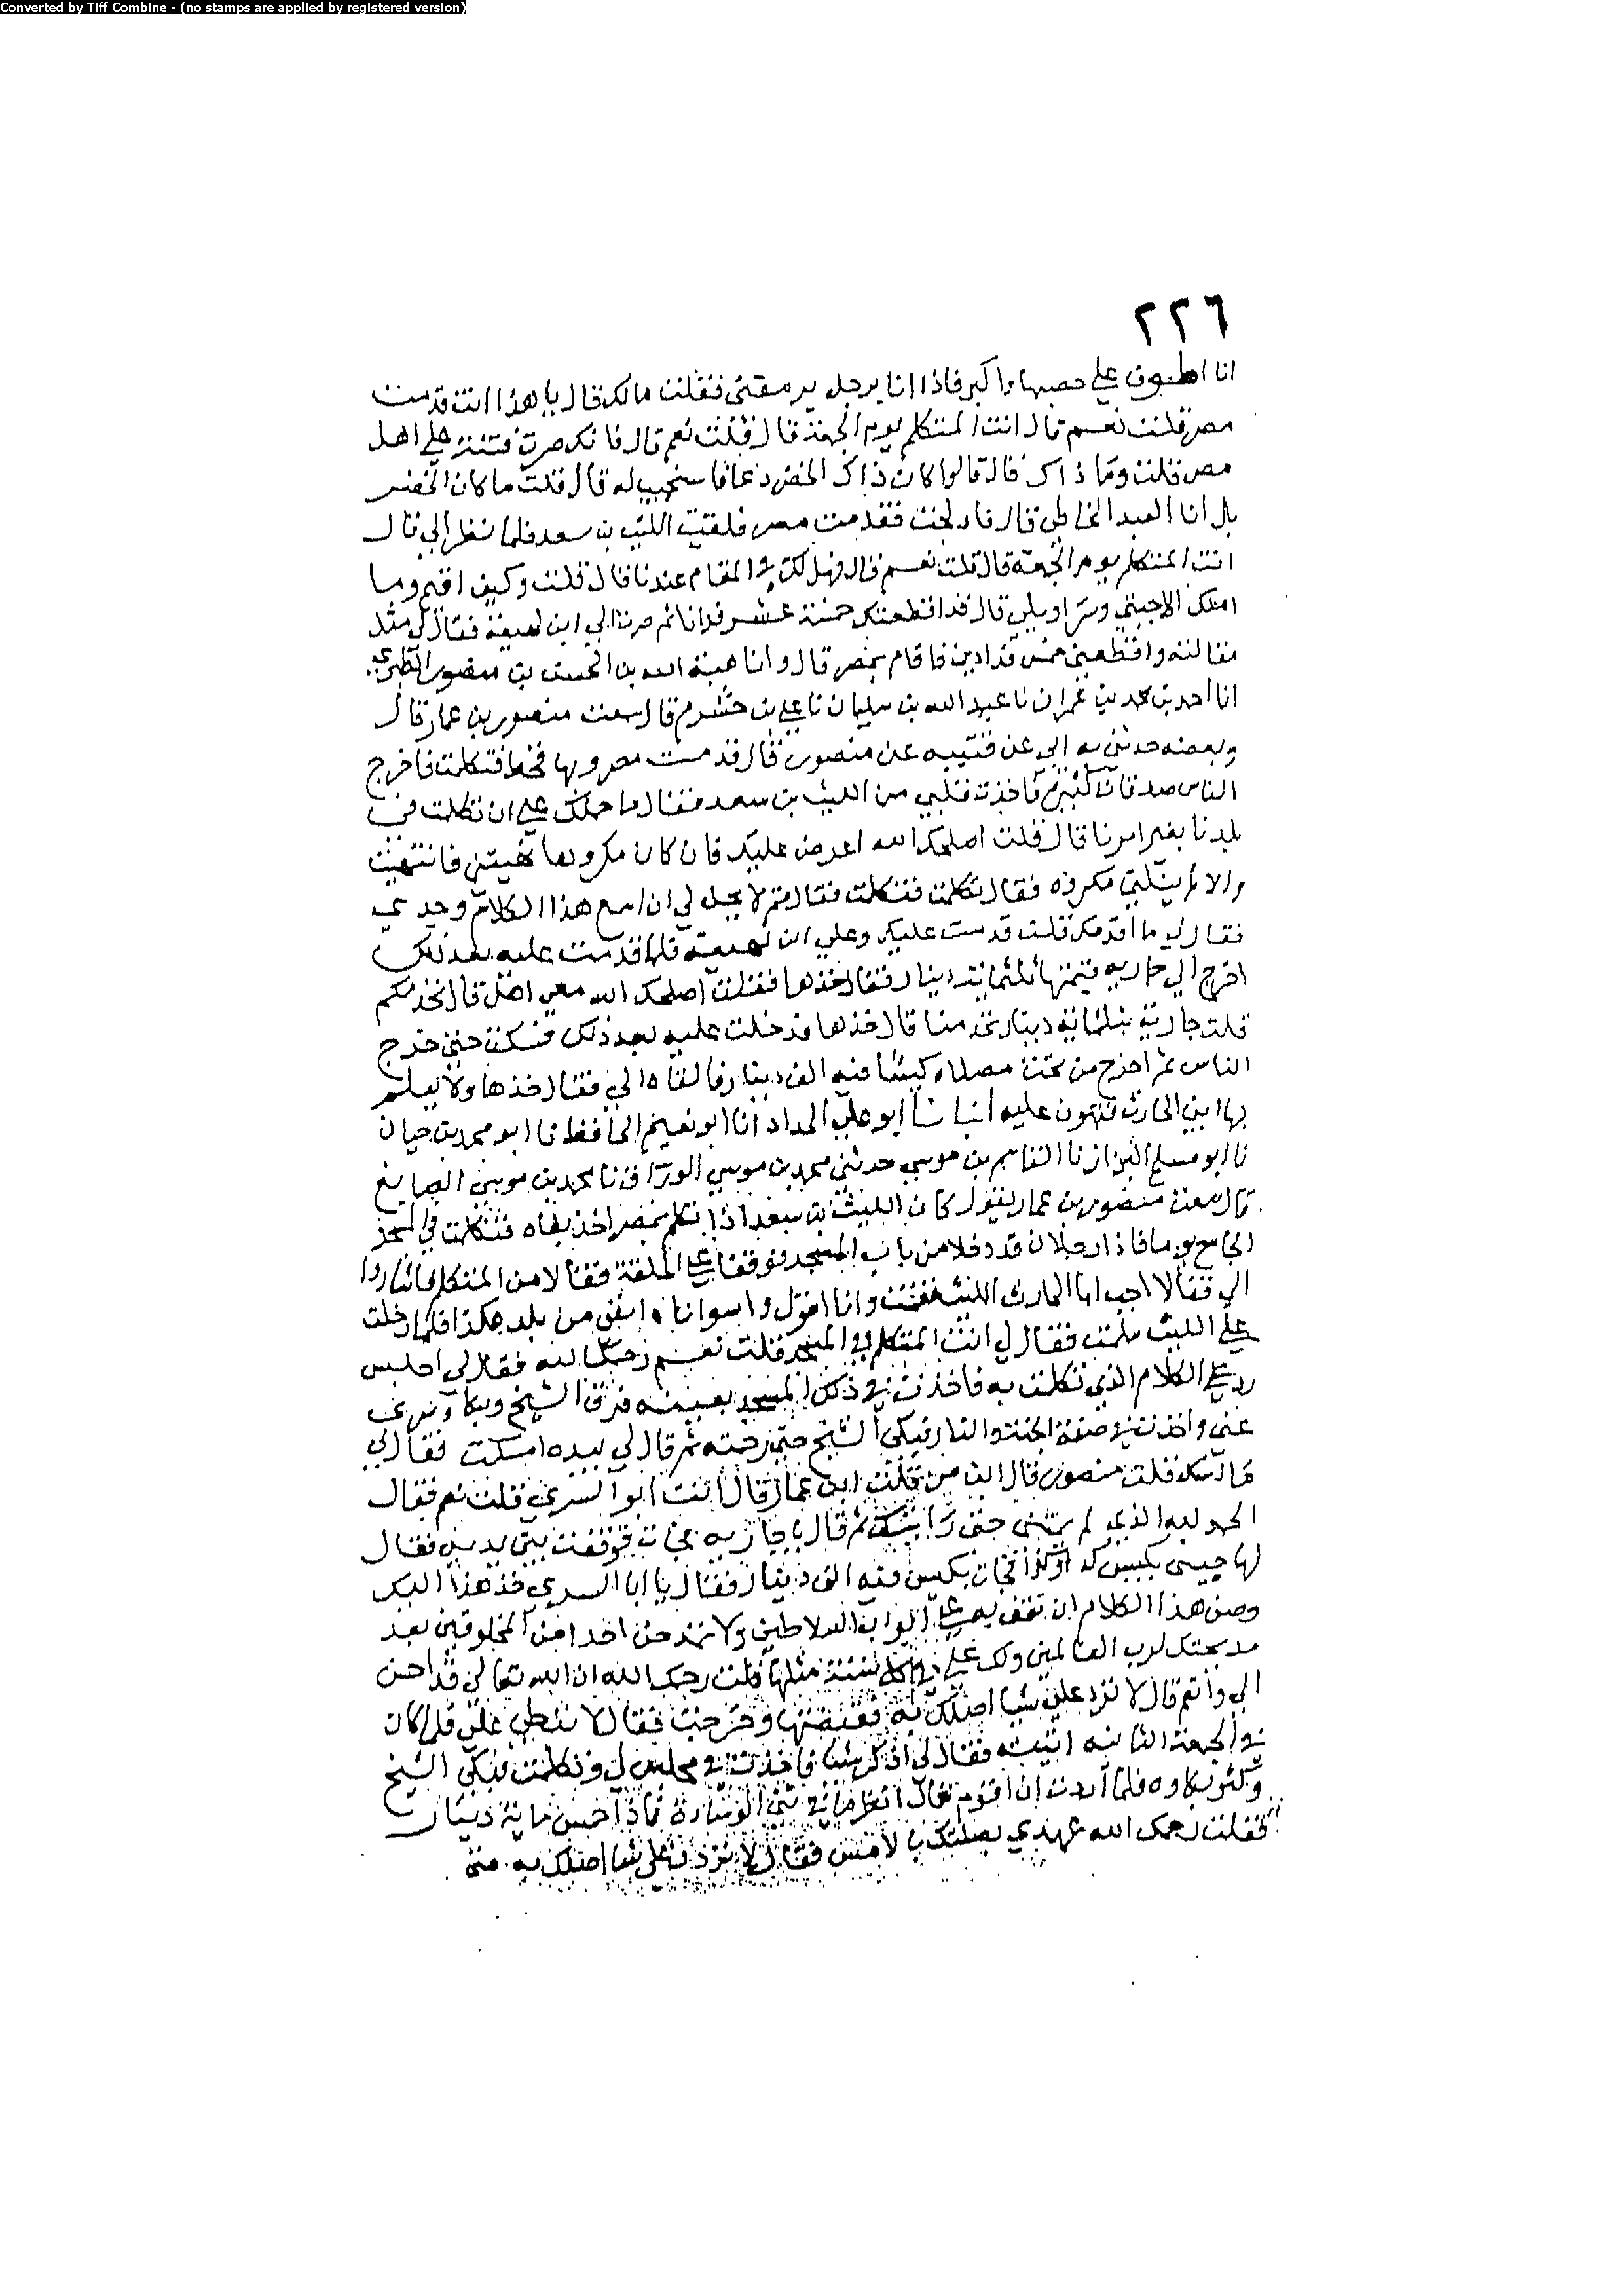 Converted by Tiff Combine - (no stamps are applied by registered version)
٢٢٦
انا اطوف على حصيها واكبر فاذا انا برجل يرمقني فقلت مالك قال يا هذا انت قدمت
مصر قلت نعم قال انت المتكلم يوم الجمعة قال قلت نعم قال فانك صرت فتنة على اهل
مصر قلت وما ذاك قال قالوا كان ذاك الخضر دعا فاستجيب له قال قلت ما كان الخضر
بل انا العبد الخاطئ قال فادلجت فقدمت مصر فلقيت الليث بن سعد فلما نظر الي قال
انت المتكلم يوم الجمعة قال قلت نعم قال فهل لك في المقام عندنا قال قلت وكيف اقيم وما
املك الا جبتي وسراويلي قال قد اقطعتك خمسة عشر فدانا ثم صرت الى ابن لهيعة فقال لي مثل
مقالته واقطعني خمس فدادين فاقام بمصر قال وانا هبة الله بن الحسن بن منصور الطبري
انا احمد بن محمد بن عمران نا عبد الله بن سليمان نا علي بن خشرم قال سمعت منصور بن عمار قال
وبعضه حدثني به ابي عن قتيبه عن منصور قال قدمت مصر وبها قحط فتكلمت فاخرج
الناس صدقات كثيرة فاخذت فـ بي من الليث بن سعد فقال ما حملك على ان تكلمت في
بلدنا بغير امرنا قال قلت اصلحك الله اعرض عليك فان كان مكروها نهيتني فانتهيت
والا لم ينلني مكروه فقال تكلم فتكلمت فقال قم لا يحل لي ان اسمع هذا الكلام وحدي
فقال لي ما اقدمك قلت قدمت عليك وعلى ابن لهيعة فلما قدمت عليه بعد ذلك
اخرج الي جاريه قيمتها ثلثماية دينار فقال خذها فقلت اصلحك الله معي اهل قال تخدمكم
قلت جارية بثلثماية دينار تخدمنا قال خذها فدخلت عليه بعد ذلك فسكت حتى خرج
الناس ثم اخرج من تحت مصلاه كيسا فيه الف دينار فالقاه الي فقال خذها ولا يعلم
بها ابني الحارث فتهون عليه انبانا ابو علي الحداد انا ابو نعيم الحافظ نا ابو محمد بن حيان
نا ابو مسلم البزاز نا القاسم بن موسى حدثني محمد بن موسى الوراق نا محمد بن موسى الصايغ
قال سمعت منصور بن عمار يقول كان الليث بن سعد اذا تكلم بمصر احد نفاه فتكلمت في المسجد
الجامع يوما فاذا رجلان قد دخلا من باب المسجد فوقفا على الحلقة فقالا من المتكلم فاشاروا
الي فقالا اجب ابا الحارث الليث فقمت وانا اقول واسواتاه انفى من بلد هكذا فلما دخلت
على الليث سلمت فقال لي انت المتكلم في المسجد قلت نعم رحمك الله فقال لي اجلس
رد علي الكلام الذي تكلمت به فاخذت في ذلك المجلس بعينه فرق الشيخ وبكا وسري
عني واخذت في صفة الجنة والنار فبكى الشيخ حتى رحمته ثم قال لي بيده اسكت فقال لي
ما اسمك قلت منصور قال ابن من قلت ابن عمار قال انت ابو السري قلت نعم فقال
الحمد لله الذي لم يمتني حتى رايتك ثم قال يا جاريه فجات فوقفت بين يديه فقال
لها جيئي بكيس كذا وكذا فجات بكيس فيه الف دينار فقال يا ابا السري خذ هذا اليك
وصن هذا الكلام ان تقف به على ابواب السلاطين ولا تمدحن احدا من المخلوقين بعد
مدحتك لرب العالمين ولك علي في كل سنة مثلها قلت رحمك الله ان الله تعالى قد احسن
الي وانعم قال لا ترد علي شيا اصلك به فقبضتها وخرجت فقال لا تبطي علي فلما كان
في الجمعة الثانيه اتيته فقال لي اذكر شيا فاخذت في مجلس لي فتكلمت فبكى الشيخ
وكثر بكاوه فلما اردت ان اقوم قال انظر ما في ثني الوسادة فاذا خمس ماية دينار
فقلت رحمك الله عهدي بصلتك بالامس فقال لا تردن علي شيا اصلك به متى